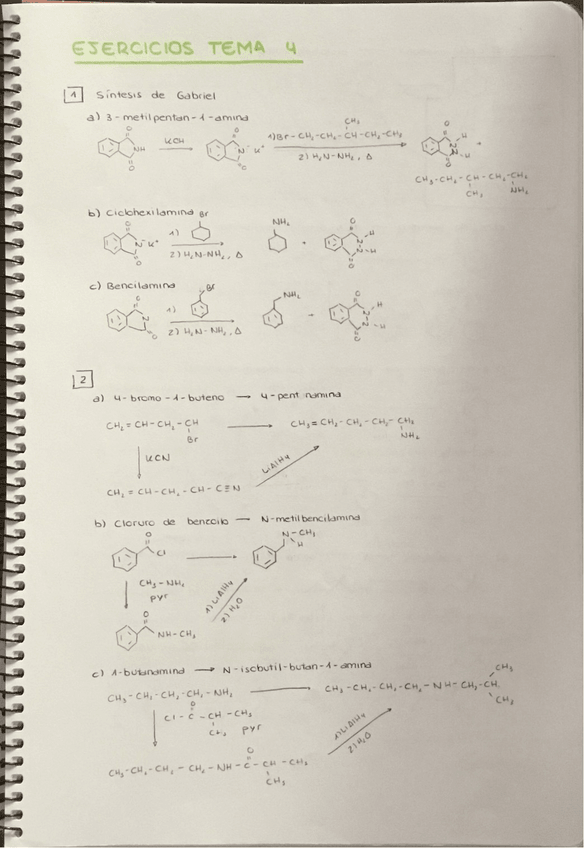 EJERCICIOS TEMA 4
1 Síntesis de Gabriel
a) 3-metilpentan-1-amina
O
NH
O
KOH
O
N⁻ K⁺
O
CH₃
1) Br-CH₂-CH₂-CH-CH₂-CH₃
2) H₂N-NH₂, Δ
O
N-H
N-H
O
+
CH₃-CH₂-CH-CH₂-CH₂
CH₃ NH₂
b) Ciclohexilamina
O
N⁻ K⁺
O
Br
1)
2) H₂N-NH₂, Δ
NH₂
+
O
N-H
N-H
O
c) Bencilamina
O
N
O
Br
1)
2) H₂N-NH₂, Δ
NH₂
O
N-H
N-H
O
2
a) 4-bromo-1-buteno → 4-pent
CH₂=CH-CH₂-CH
Br
CH₂=CH₂-CH₂-CH₂-CH₂
NH₂
KCN
LiAlH₄
CH₂=CH-CH₂-CH-C≡N
b) Cloruro de benzoilo → N-metilbencilamina
O
Cl
N-CH₃
H
CH₃-NH₂
pyr
1) LiAlH₄
2) H₂O
O
NH-CH₃
c) 1-butanamina → N-isobutil-butan-1-amina
CH₃-CH₂-CH₂-CH₂-NH₂
CH₃-CH₂-CH₂-CH₂-NH-CH₂-CH
CH₃
CH₃
O
Cl-C-CH-CH₃
CH₃ pyr
1) LiAlH₄
2) H₂O
O
CH₃-CH₂-CH₂-CH₂-NH-C-CH-CH₃
CH₃